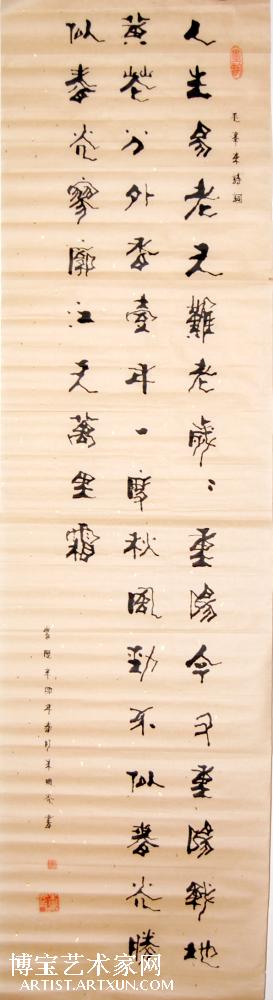 毛澤東詩詞
人生易老天難老歲〻重陽今又重陽戰地
黄花分外香壹年一度秋風勁不似春光勝
似春光寥廓江天萬里霜
辛卯年春月
書
博宝艺术家网
ARTIST.ARTXUN.COM